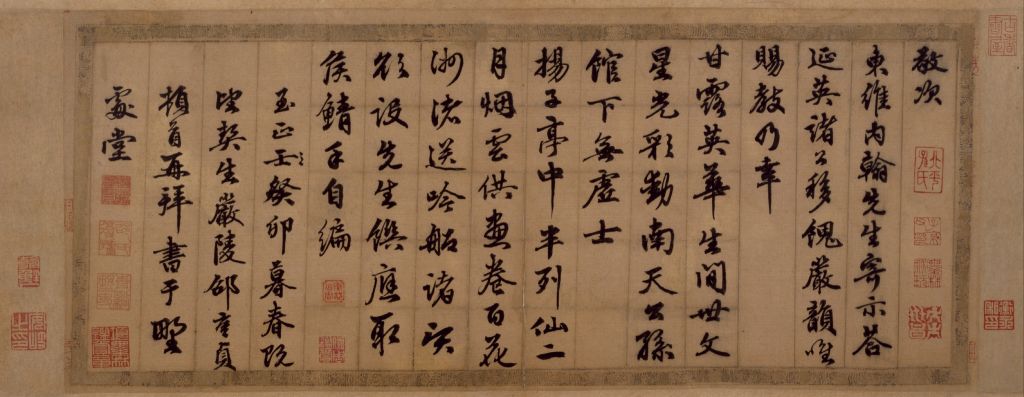 敬次
東維內翰先生寄示荅
延英諸公移餽嚴韻惟
賜教乃幸
甘露英華生間世文
星光彩動南天公孫
館下無虛士
揚子亭中半列仙二
月烟雲供畫卷百花
洲渚送吟船諸
設先生饌應取
侯鯖手自編
至正癸卯暮春既
望契生嚴陵邵
頓首再拜書于野
處堂